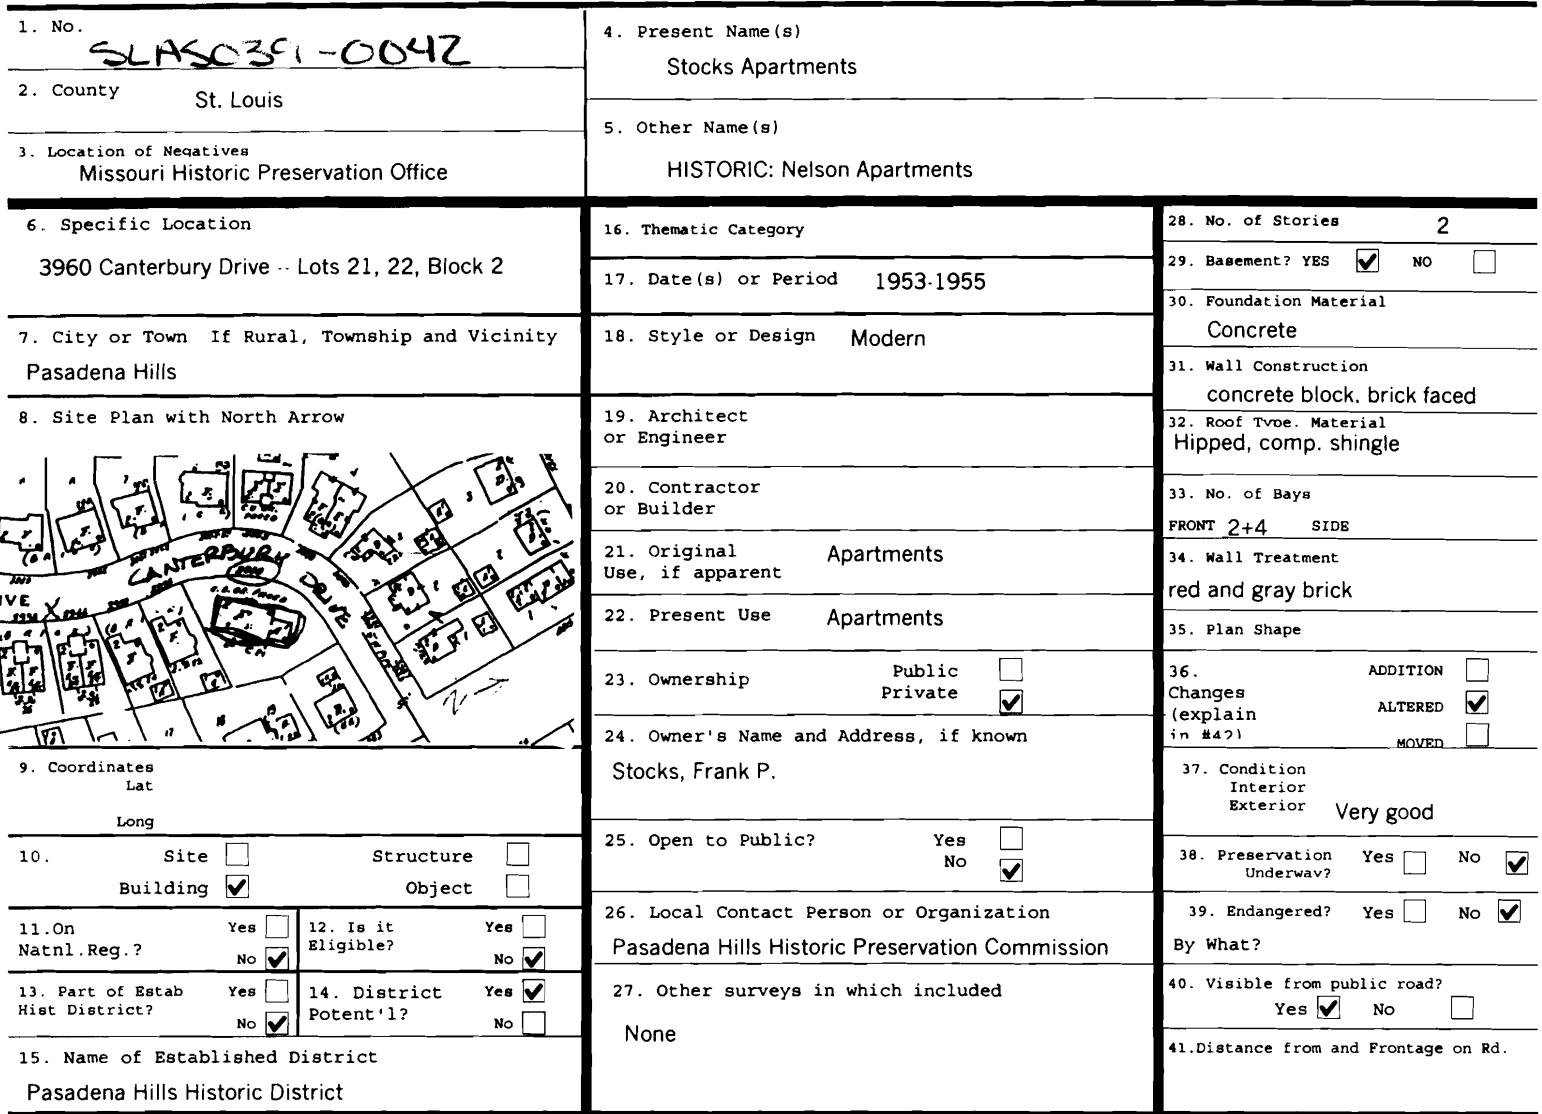 1. No.
SLAS039-0042
2. County St. Louis
3. Location of Negatives
Missouri Historic Preservation Office
4. Present Name(s)
Stocks Apartments
5. Other Name(s)
HISTORIC: Nelson Apartments
6. Specific Location
3960 Canterbury Drive -- Lots 21, 22, Block 2
7. City or Town If Rural, Township and Vicinity
Pasadena Hills
8. Site Plan with North Arrow
CANTERBURY DRIVE
9. Coordinates
Lat
Long
10. Site Structure
Building ✔ Object
11.On Yes
Natnl.Reg.? No ✔
12. Is it Yes
Eligible? No ✔
13. Part of Estab Yes
Hist District? No ✔
14. District Yes ✔
Potent'l? No
15. Name of Established District
Pasadena Hills Historic District
16. Thematic Category
17. Date(s) or Period 1953-1955
18. Style or Design Modern
19. Architect
or Engineer
20. Contractor
or Builder
21. Original Apartments
Use, if apparent
22. Present Use Apartments
23. Ownership Public
Private ✔
24. Owner's Name and Address, if known
Stocks, Frank P.
25. Open to Public? Yes
No ✔
26. Local Contact Person or Organization
Pasadena Hills Historic Preservation Commission
27. Other surveys in which included
None
28. No. of Stories 2
29. Basement? YES ✔ NO
30. Foundation Material
Concrete
31. Wall Construction
concrete block. brick faced
32. Roof Type. Material
Hipped, comp. shingle
33. No. of Bays
FRONT 2+4 SIDE
34. Wall Treatment
red and gray brick
35. Plan Shape
36. ADDITION
Changes
(explain ALTERED ✔
in #42) MOVED
37. Condition
Interior
Exterior Very good
38. Preservation Yes No ✔
Underway?
39. Endangered? Yes No ✔
By What?
40. Visible from public road?
Yes ✔ No
41.Distance from and Frontage on Rd.